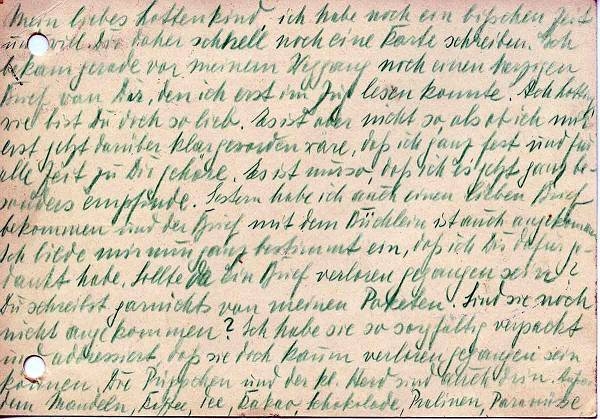 Mein liebes Lottenkind ich habe noch ein bißchen Zeit
und will Dir daher schnell noch eine Karte schreiben. Ich
bekam gerade vor meinem Weggang noch einen herzigen
Brief von Dir, den ich erst im Zug lesen konnte. Ach Lotte
wie bist Du doch so lieb. Es ist aber nicht so, als ob ich mir
erst jetzt darüber klargeworden wäre, daß ich ganz fest und für
alle Zeit zu Dir gehöre. Es ist nur so, daß ich es jetzt ganz be-
sonders empfinde. Gestern habe ich auch einen lieben Brief
bekommen und der Brief mit dem Büchlein ist auch angekommen
Ich bilde mir nun ganz bestimmt ein, daß ich Dir dafür ge-
dankt habe. Sollte da ein Brief verloren gegangen sein?
Du schreibst garnichts von meinen Paketen. Sind sie noch
nicht angekommen? Ich habe sie so sorgfältig verpackt
und addressiert, daß sie doch kaum verloren gegangen sein
können. Die Püppchen und der kl. Herd sind auch drin. Außer
dem Mandeln, Kaffee, Tee, Kakao, Schokolade, Pralinen, Paranüsse